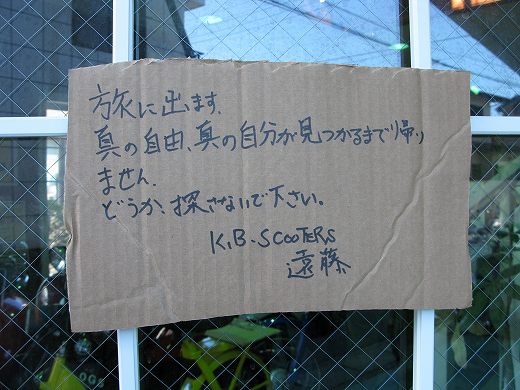 旅に出ます.
真の自由、真の自分が見つかるまで帰り
ません.
どうか、探さないで下さい。
K.B.SCOOTERS
遠藤